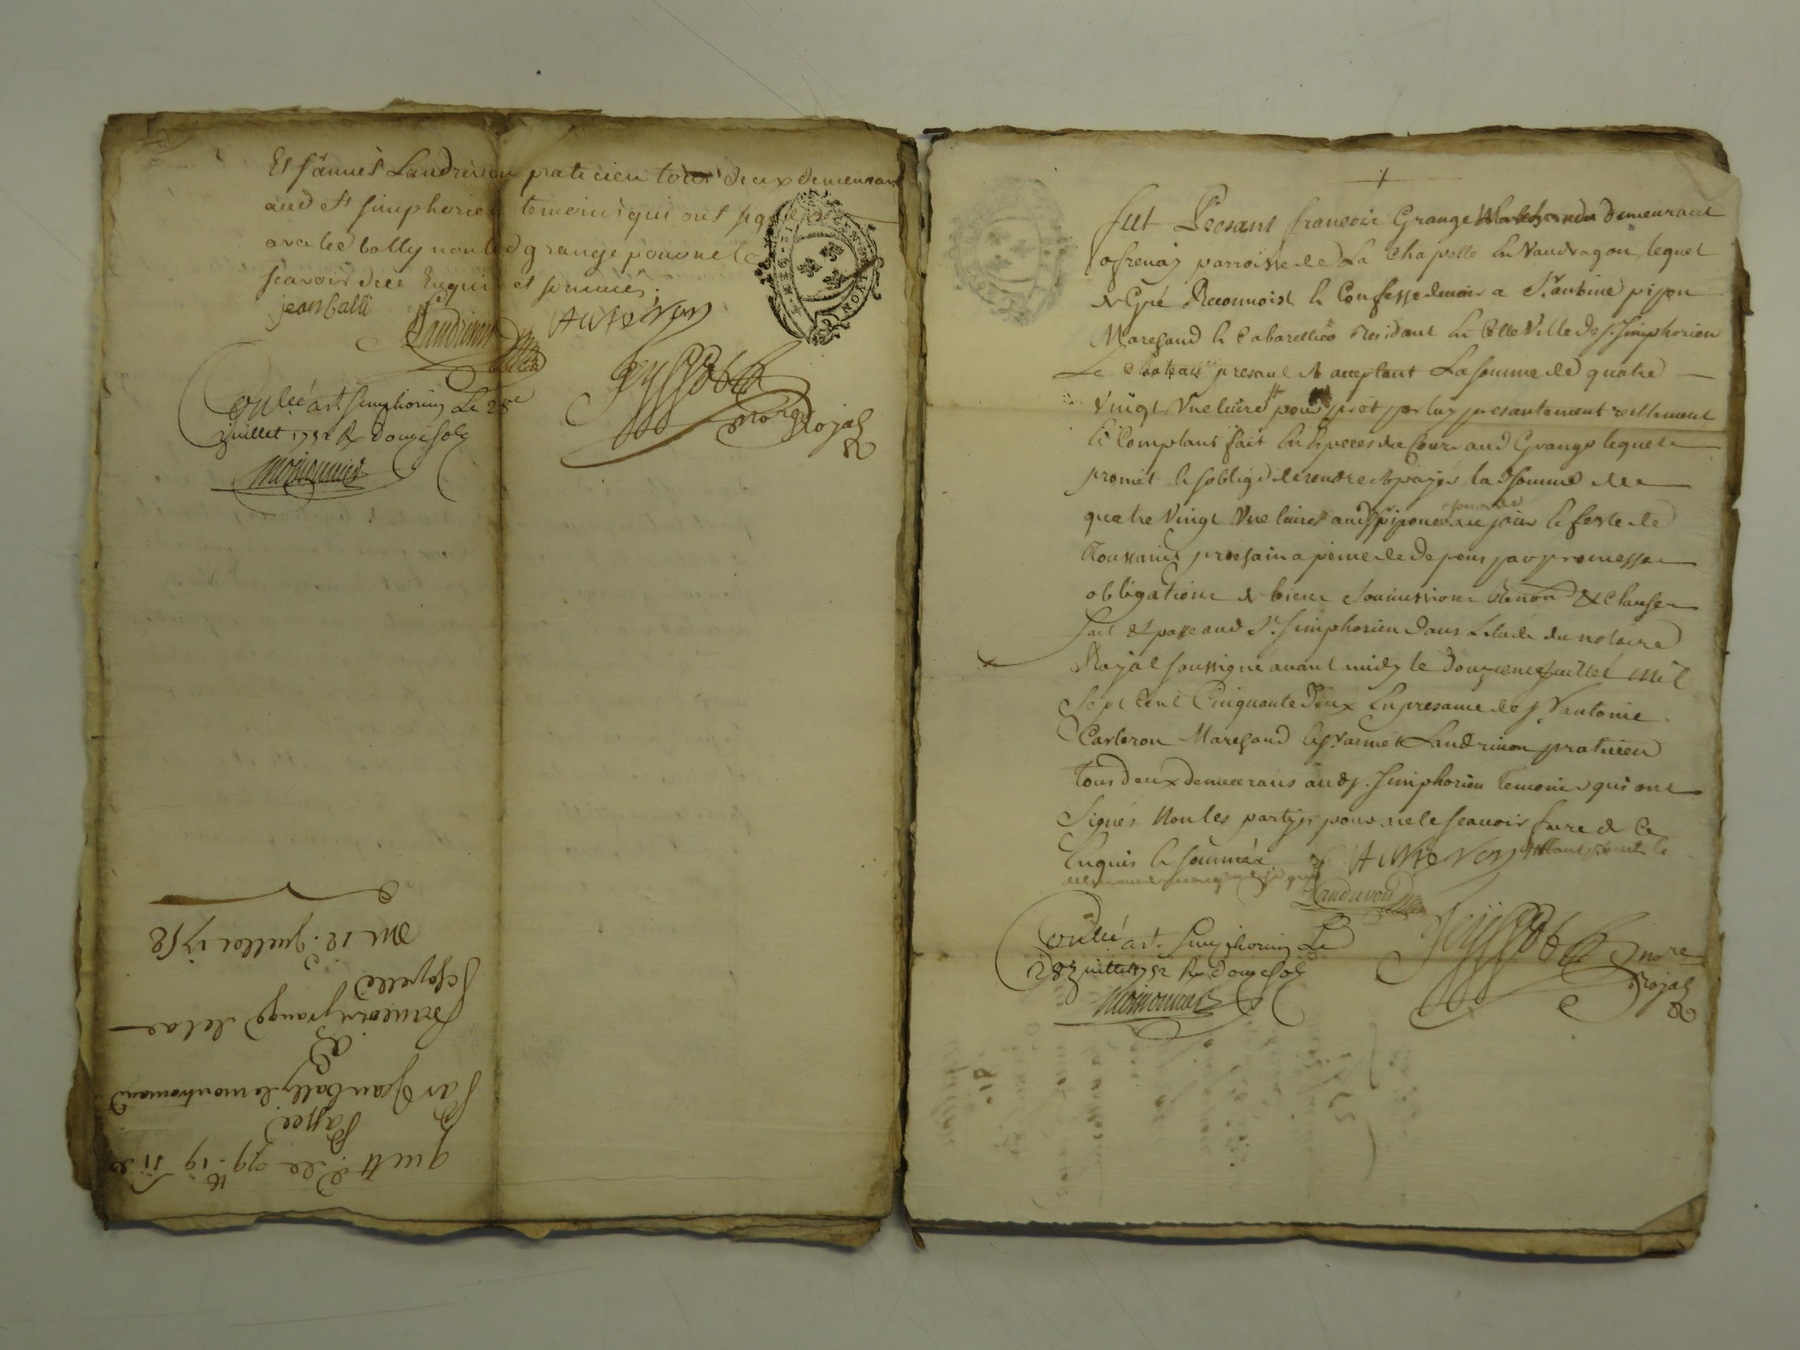 Et s.r aimé Landrivon praticien tous deux demeurant
aud st simphorien temoins qui ont signé
avec led bally non led grange pour ne le
scavoir de ce enquis et sommés.
jean balli
Landrivon
Controllé a st. simphorien Le 28e
juillet 1752 R douze sols
Moissonnier
Peyssot
nore Royal
quitt de 79 . 19
passée
Par Jean bally de montromand
a
francois grange de la
chapelle
du 12. Juillet 1752
fut Present francois Grange demeurant
ofrenay parroisse de La Chapelle En Vaudragon, lequel
de Gré Reconnoist Et Confesse devoir a Sr. antoine pipon
Marchand Et Cabarettier Residant En Cette Ville de St. Simphorien
Le Chateau present & acceptant La somme de quatre
vingt une livre pour pret par luy presantement reellement
Et Comptant fait En Especes de Cour aud Grange lequel
promet Et soblige de rendre & payer la d somme de
quatre vingt une livres aud sr pipon au jour Et feste de
Toussaint prochain a peine de depens par promesse
obligations de biens soumissions Renon & Clauses
fait & passé aud St. Simphorien dans Létude du notaire
Royal soussigné avant midy le douzieme juillet mil
sept Cent Cinquante deux En presance de sr. antoine
Carteron Marchand Et sr. aimé Landrivon praticien
tous deux demeurans aud St. Simphorien temoins qui ont
signés non les partyes pour ne le scavoir faire de Ce
Enquis Et sommées
Landrivon
Controllé a st. Simphorien Le
28 juillet 1752 R douze sols
Moissonnier
Peyssot
nore
Royal